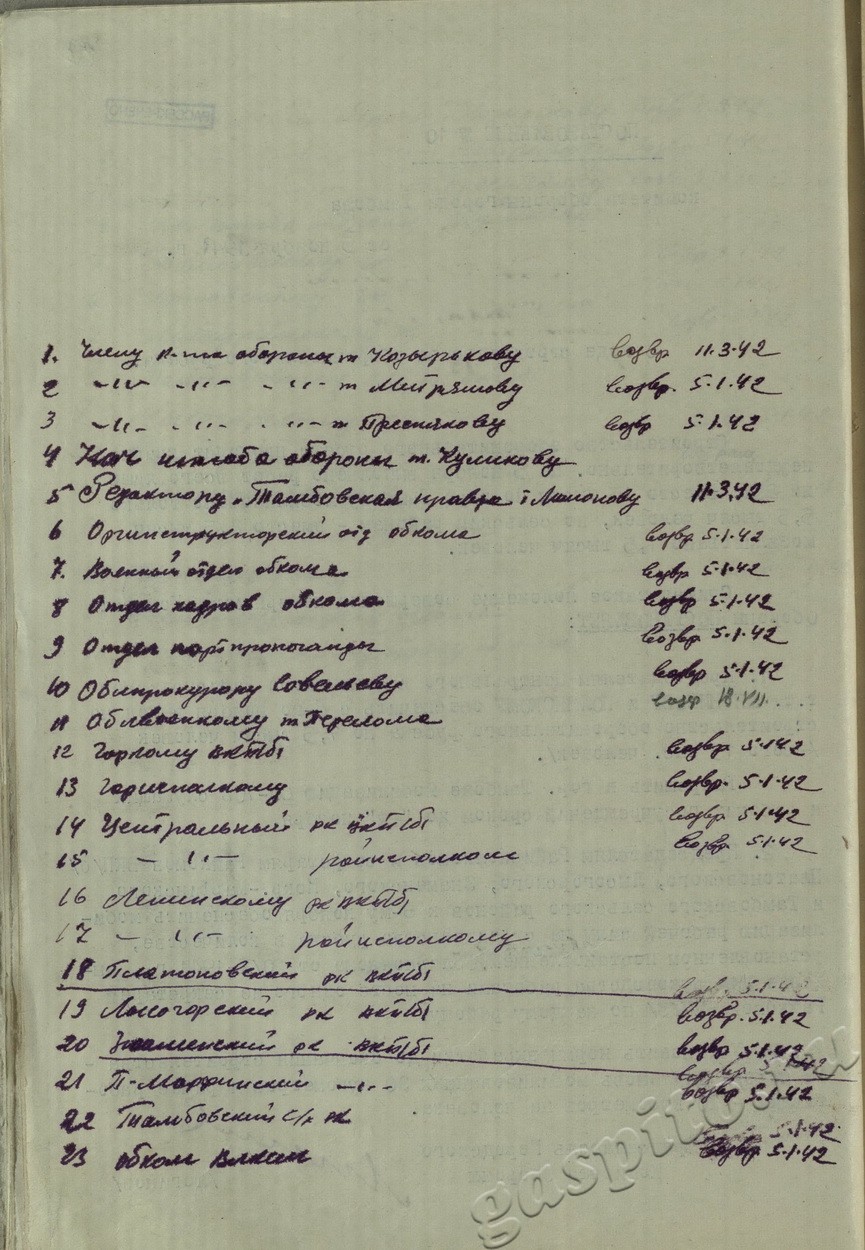 1. Члену к-та обороны т Козырькову возвр 11.3.42
2 -"- -"- -"- т возвр. 5.1.42
3 -"- -"- -"- т Преснякову возвр 5.1.42
4 Нач штаба обороны т. Куликову
5 Редактору „Тамбовская правда т Лимонову 11.3.42
6 Оргинструкторский отд обкома возвр 5.1.42
7. Военный отдел обкома возвр 5.1.42
8 Отдел кадров обкома возвр 5.1.42
9 Отдел партпропоганды возвр 5.1.42
10 Облпрокурору Савельеву возвр 5.1.42
11 Облвоенкому т Перелома возвр 18.VII
12 Горкому ВКП/б/ возвр 5.1.42
13 Горисполкому возвр. 5.1.42
14 Центральный рк ВКП/б/ возвр 5.1.42
15 -"- райисполком возвр 5.1.42
16 Ленинскому рк ВКП/б/
17 -"- райисполкому
18 Платоновский рк ВКП/б/ возвр 5.1.42
19 Лысогорский рк ВКП/б/ возвр. 5.1.42
20 Знаменский рк ВКП/б/ возвр 5.1.42
возвр 5.1.42
21 П-Марфинский -"- возвр 5.1.42
22 Тамбовский с/х рк 5.1.42
23 обком влксм возвр 5.1.42
gaspito.ru